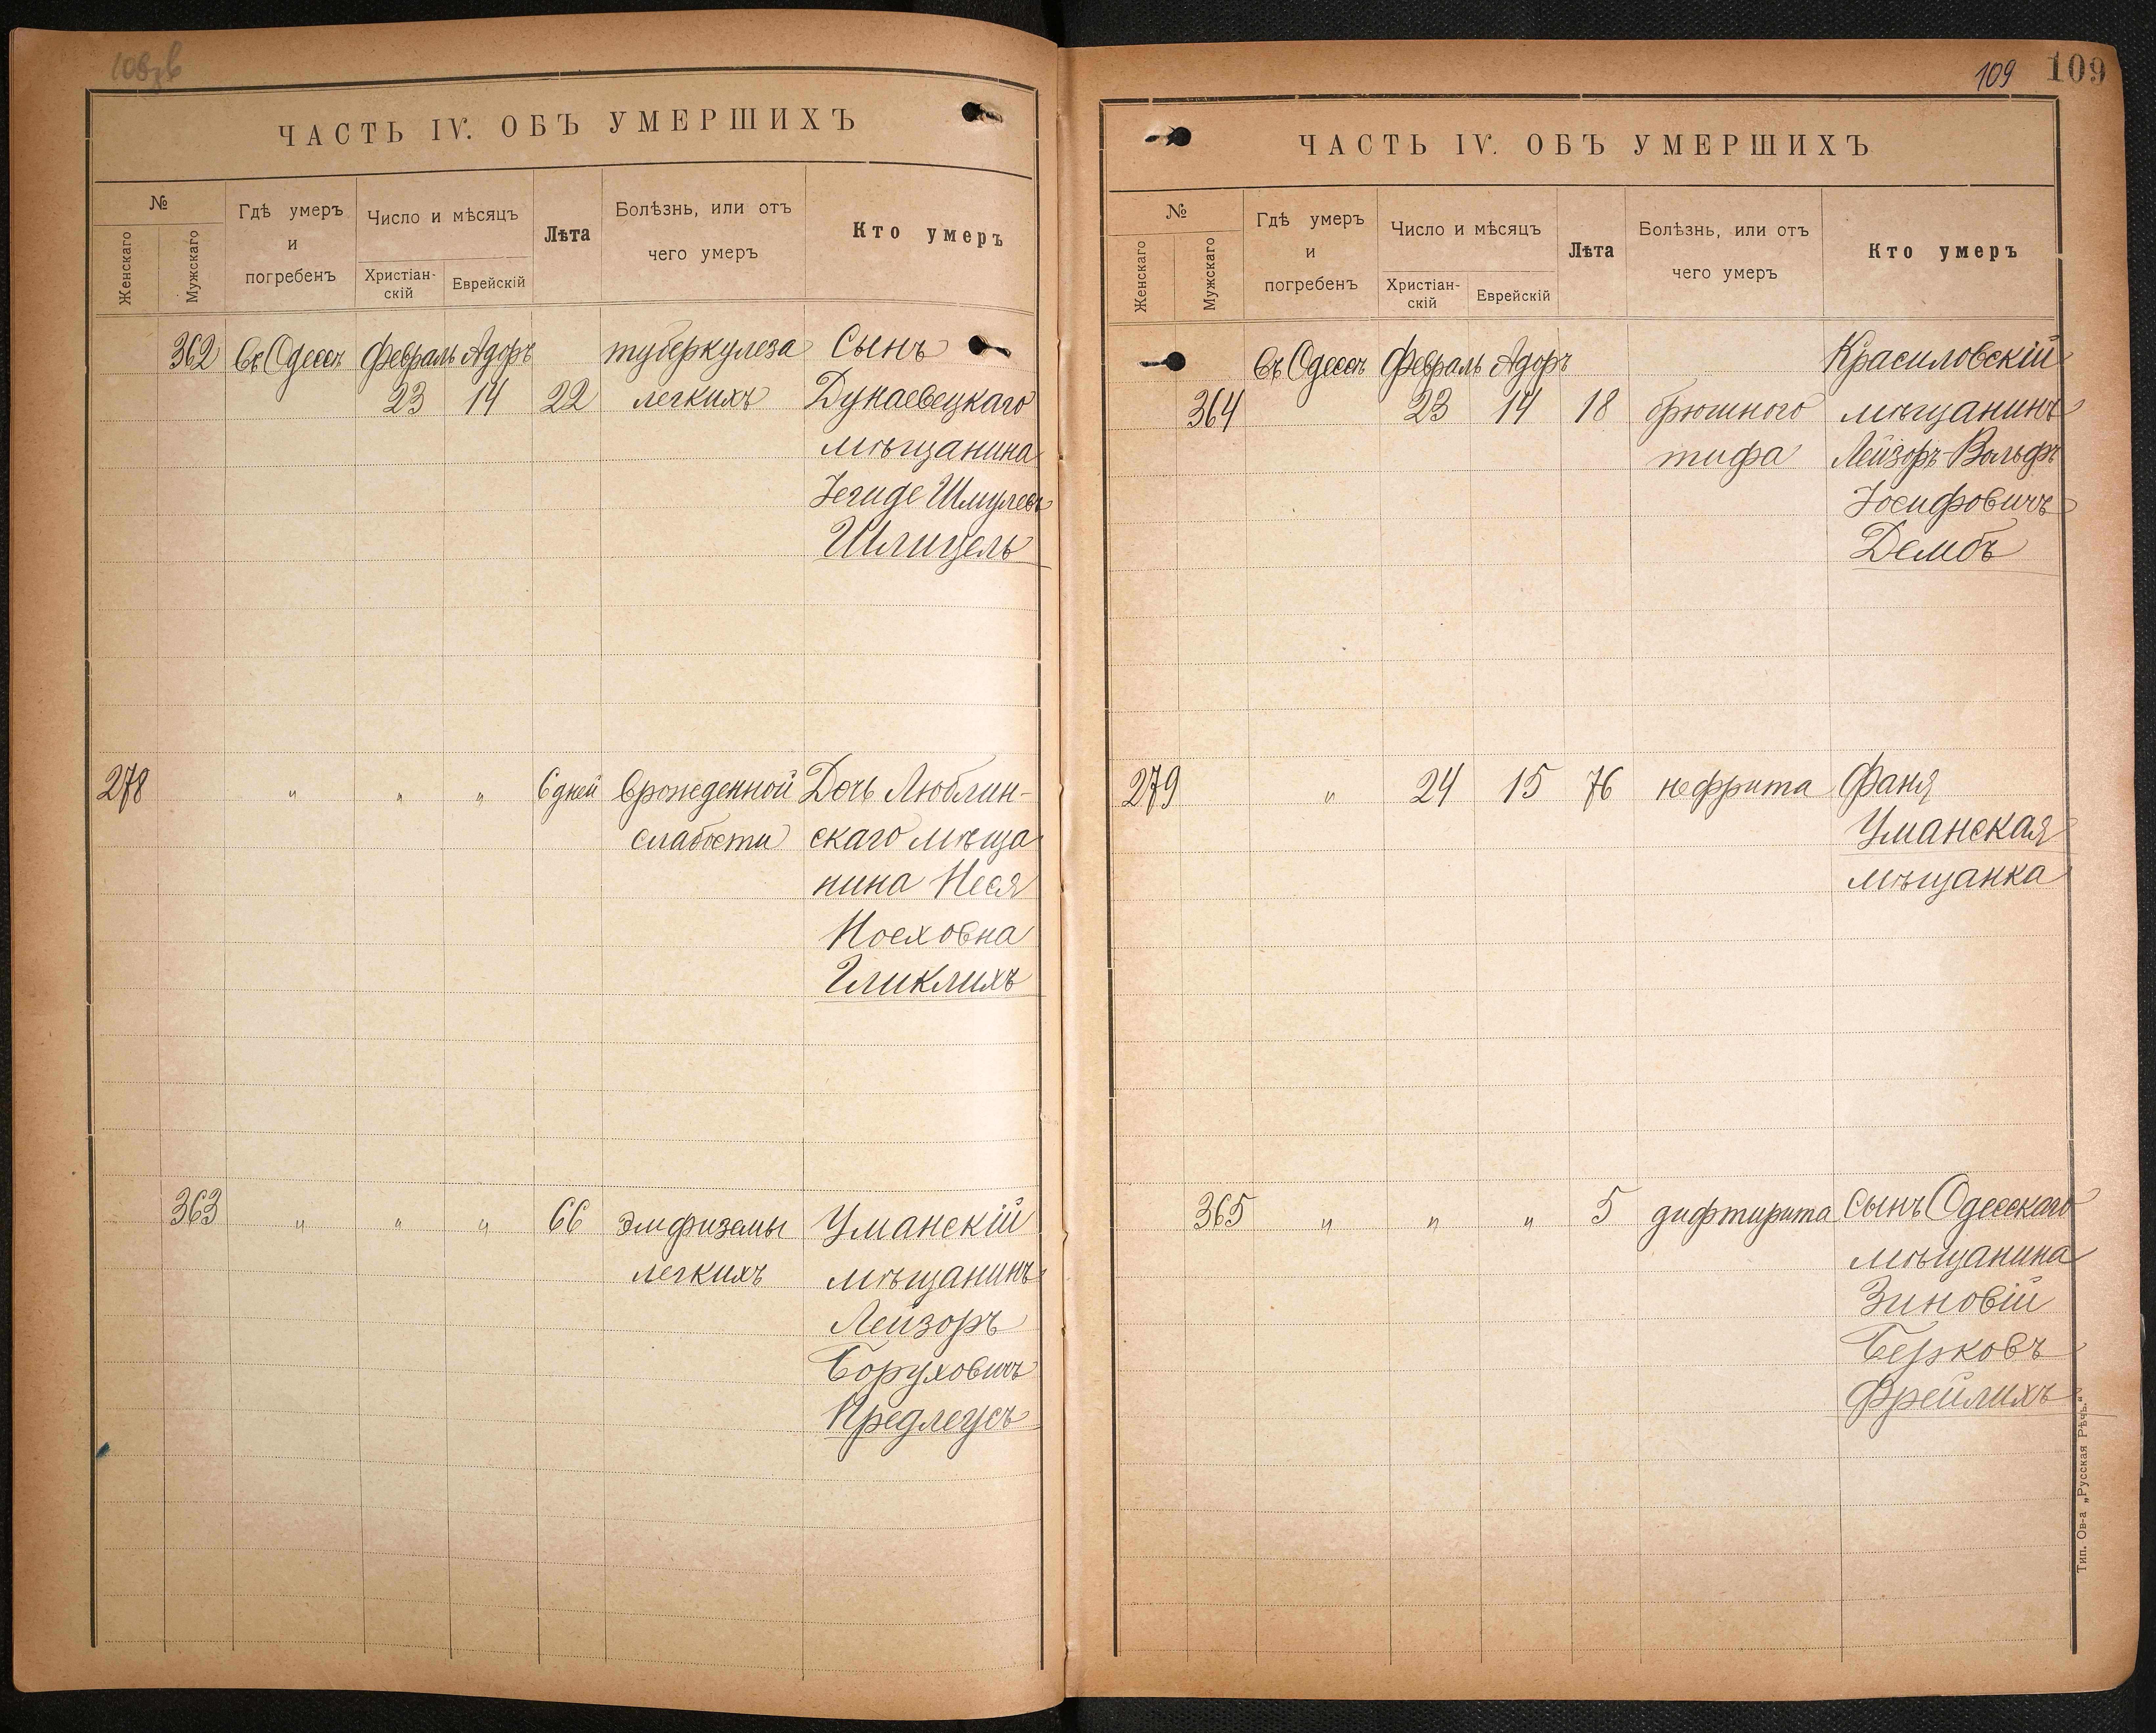 ЧАСТЬ IV. ОБЪ УМЕРШИХЪ
№
Женскаго
Мужскаго
Гдѣ умеръ
и
погребенъ
Число и мѣсяцъ
Христіан-
скій
Еврейскій
Лѣта
Болѣзнь, или отъ
чего умеръ
Кто умеръ
362 Въ Одессѣ Февраль Адоръ туберкулеза Сынъ
23 14 22 легкихъ Дунаевецкаго
мѣщанина
Шмулевъ
Шлицель
278 " " " 6 дней врожденной Дочь Люблин-
слабости скаго мѣща
нина Неся
Ноеховна
Гликлихъ
363 " " " 66 эмфиземы Уманскій
легкихъ мѣщанинъ
Лейзоръ
Боруховичъ
Предлеусъ
109 109
ЧАСТЬ IV. ОБЪ УМЕРШИХЪ
№
Женскаго
Мужскаго
Гдѣ умеръ
и
погребенъ
Число и мѣсяцъ
Христіан-
скій
Еврейскій
Лѣта
Болѣзнь, или отъ
чего умеръ
Кто умеръ
Въ Одессѣ Февраль Адоръ Красиловскій
364 23 14 18 брюшного мѣщанинъ
тифа Лейзоръ-Вольфъ
Іосифовичъ
Дембъ
279 " 24 15 76 нефрита Фаня
Уманская
мѣщанка
365 " " " 5 дифтирита Сынъ Одесскаго
мѣщанина
Зиновій
Берковъ
Фрейлихъ
Тип. Ов-а „Русская Рѣчь."